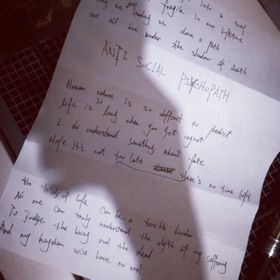 fragile in our lifetime
we all live under the shadow of death
ANTI SOCIAL PSYCHOPATH
Human nature is so difficult to predict
life is so long when you get upset
I do understand something about fate
Hope it's not too late there's no time left
the of life can be a terrible burden
No one can truly understand the depth of my suffering
To judge the living and the dead
And my kingdom will have no end